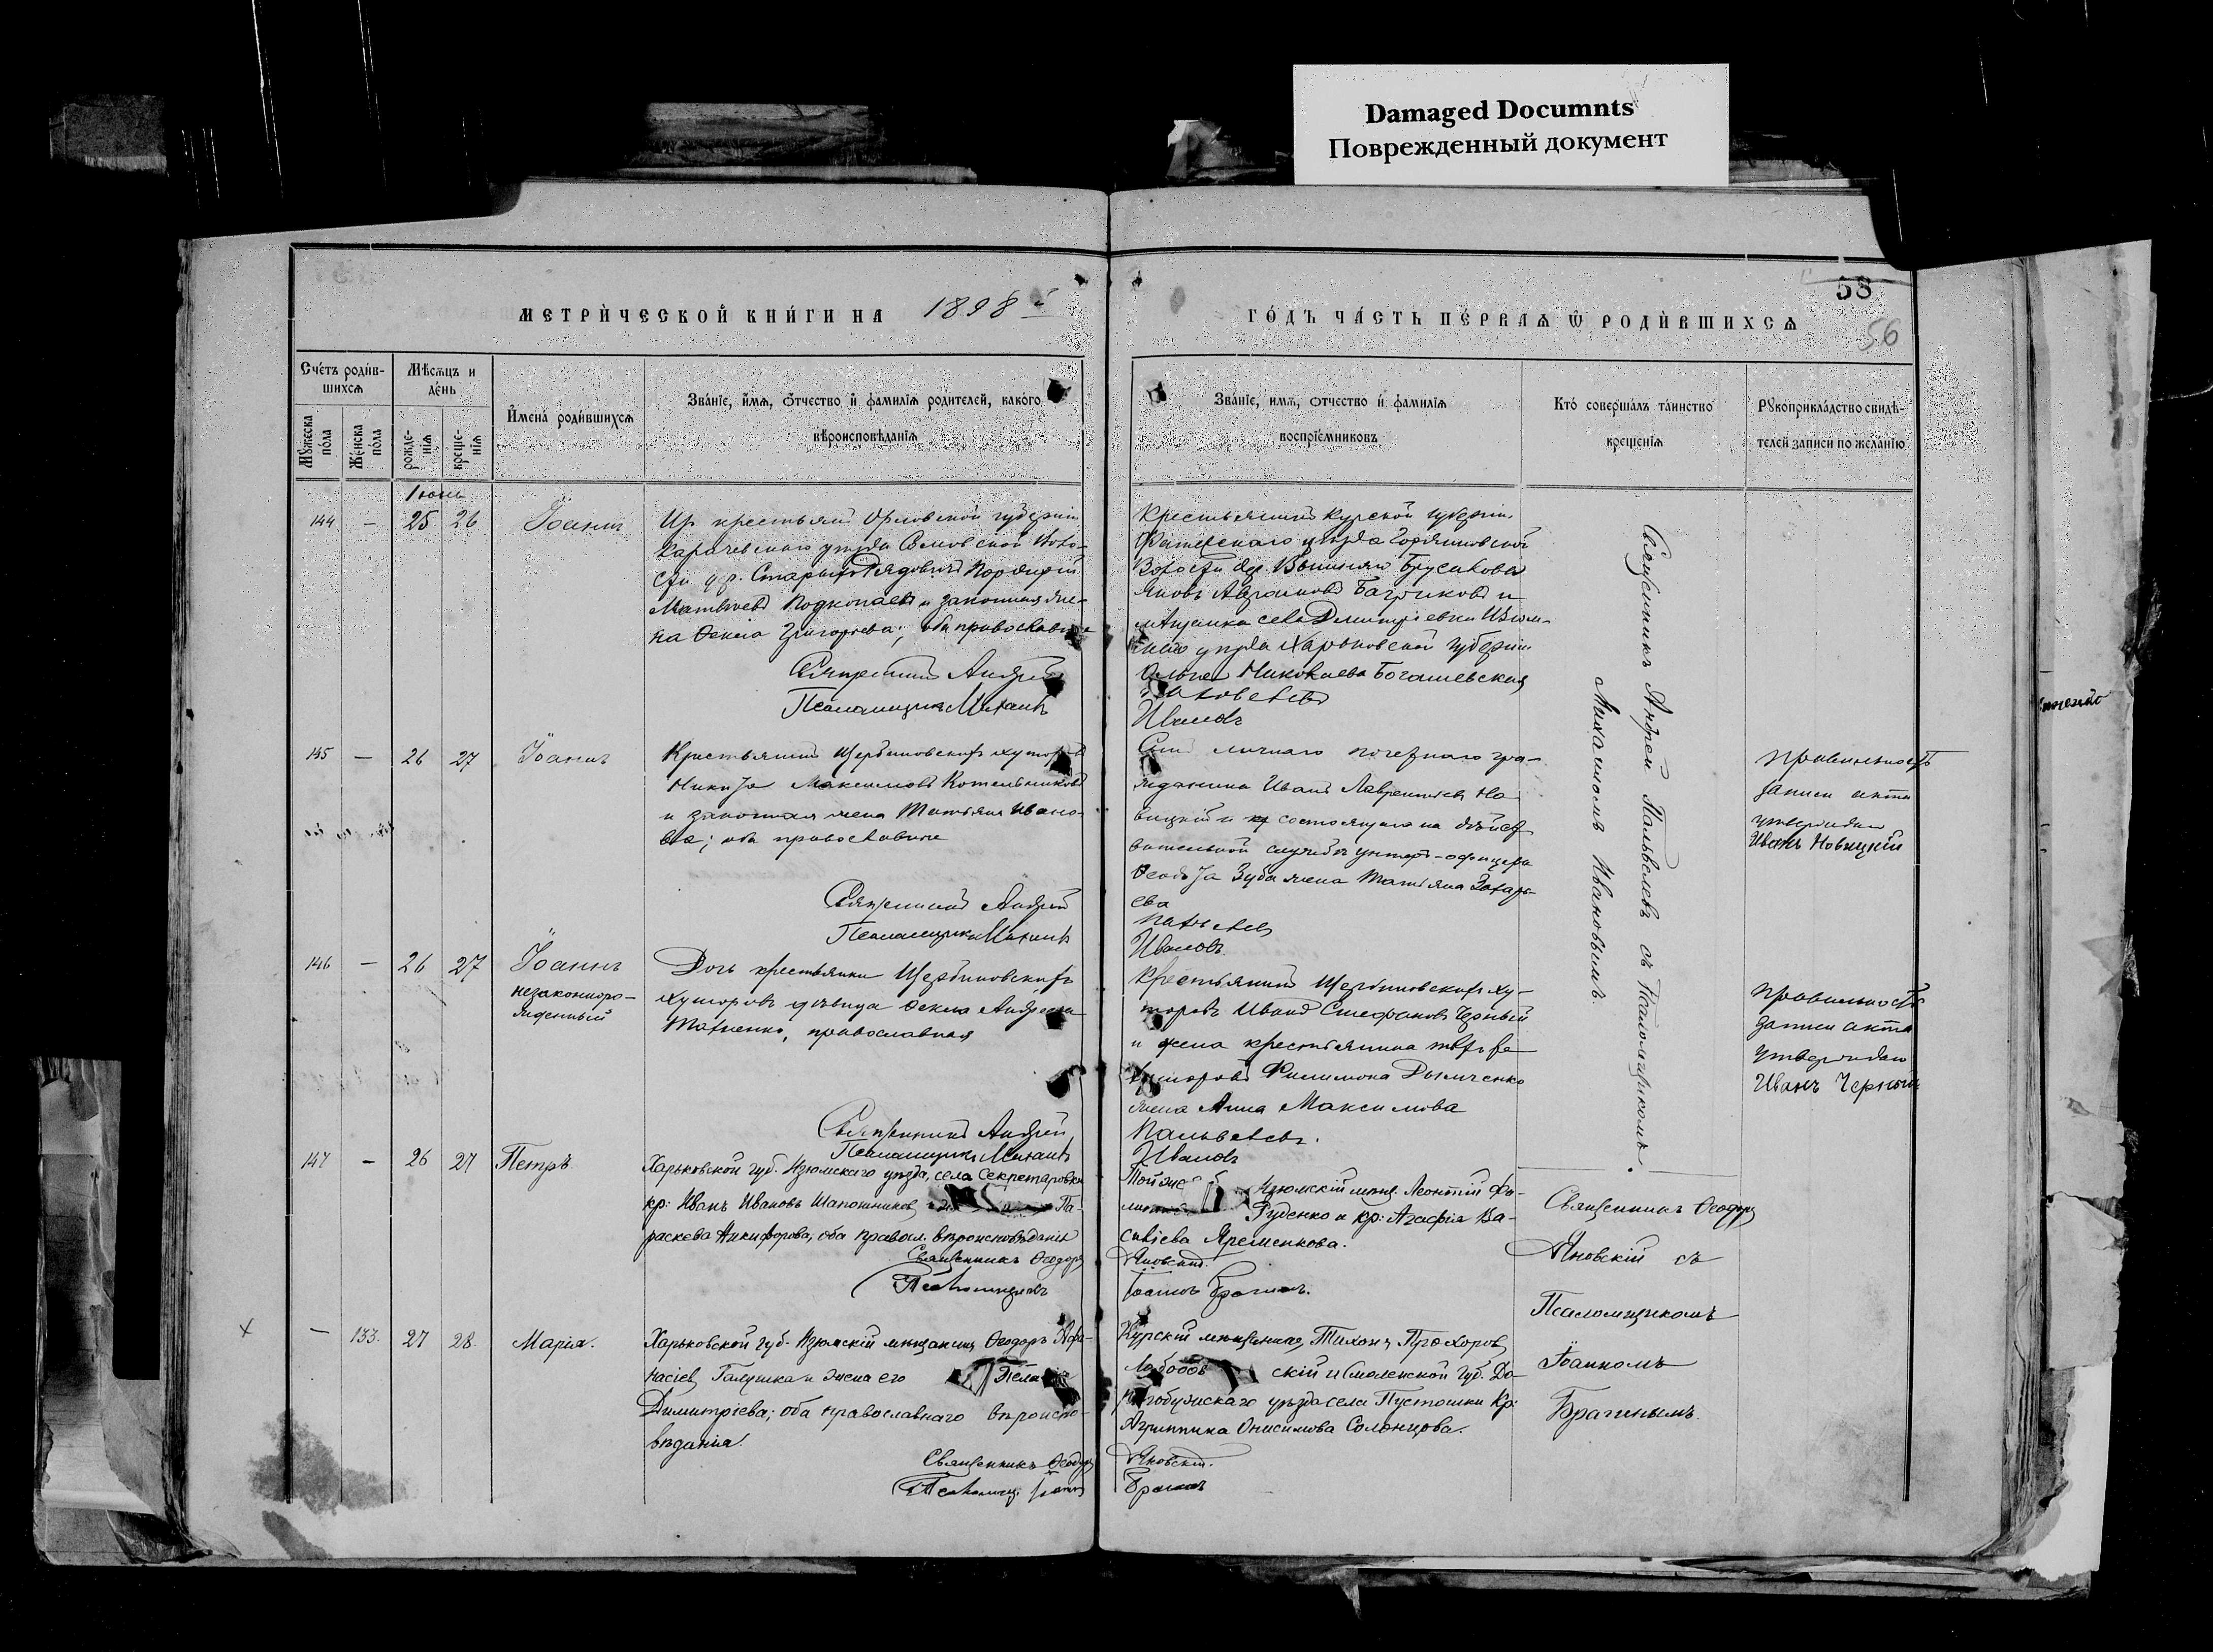 Damaged Documnts
Поврежденный документ
58
56
МЕТРИ́ЧЕСКОЙ КНИ́ГИ НА 1898 й
ГО́ДЪ ЧА́СТЬ ПЕ́РВАѦ Ѡ РОДИ́ВШИХСѦ
Сче́тъ роди́в-
шихсѧ
Мꙋжеска по́ла
Же́нска по́ла
Мѣ́сѧцъ и
де́нь
рожде-
нїѧ
креще-
нїѧ
Имена́ роди́вшихсѧ
Зва́нїе, и́мѧ, о́тчество и фами́лїѧ родителей, како́го
вѣроисповѣ́данїѧ
Зва́нїе, имѧ, о́тчество и фамилїѧ
воспрїе́мниковъ
Кто́ соверша́лъ та́инство
креще́нїѧ
Рꙋкоприкла́дство свидѣ́-
телей записи по жела́нїю
Іюнь
144 — 25 26 Іоаннъ
крестьянъ Орловской губерніи
Карачевскаго уѣзда
Матвѣевъ Подкопаевъ и законная же-
на Ѳекла Григорьева; оба православные
Священникъ Андрей
Псаломщикъ Михаилъ
Крестьянинъ Курской губерніи
Фатежскаго уѣзда
Волости дер.
Яковъ
Дмитріевки Изюм-
скаго уѣзда Харьковской губерніи
Николаева Богашевская
Пальвелевъ
Ивановъ
Священникъ Андрей Пальвелевъ съ Псаломщикомъ
Михаиломъ Ивановымъ.
145 — 26 27 Іоаннъ
Крестьянинъ Щербиновскихъ хуторовъ
Никита Максимовъ Котельниковъ
и законная жена Татіана Ивано-
ва; оба православные
Священникъ Андрей
Псаломщикъ Михаилъ
Сынъ личнаго почетнаго гра-
жданина Иванъ Лаврентіевъ Но-
вицкій и состоящаго на дѣйст-
вительной службѣ унтеръ-офицера
Зуба жена Татіана Захарь-
ева
Пальвелевъ
Ивановъ
правильность
записи акта
утверждаю
Иванъ Новицкій
146 — 26 27 Іоаннъ
незакопноро-
жденный
Дочь крестьянки Щербиновскихъ
хуторовъ дѣвица Ѳекла Андреева
православная
Священникъ Андрей
Псаломщикъ Михаилъ
Крестьянинъ Щербиновскихъ ху-
торовъ Иванъ Стефановъ Черный
и жена крестьянина тѣхъ же
хуторовъ Филимона Дымченко
жена Анна Максимова
Пальвелевъ.
Ивановъ
правильность
записи акта
утверждаю
Иванъ Черный
147 — 26 27 Петръ.
Харьковской губ. Изюмскаго уѣзда, села Секретаровки
кр: Иванъ Ивановъ Шапошниковъ Па-
раскева Никифорова, оба правосл. вѣроисповѣданія
Священникъ Ѳеодоръ
Псаломщикъ
Той же Изюмскій мѣщ. Леонтій Фо-
Руденко и кр: Агафія Ва-
силіева Яременкова.
Яновскій.
Іоаннъ Брагинъ.
Священникъ Ѳеодоръ
Яновскій съ
Псаломщикомъ
Іоанномъ
Брагинымъ.
х — 133. 27 28. Марія.
Харьковской губ. Изюмскій мѣщанинъ Ѳеодоръ Афа-
насіевъ Галушка и жена его Пелагія
Димитріева; оба православнаго вѣроиспо-
вѣданія.
Священникъ Ѳеодоръ
Псаломщ. Іоаннъ
Курскій мѣщанинъ Тихонъ Прохоровъ
Лободов скій и Смоленской губ. До-
рогобужскаго уѣзда села Пустошки Кр:
Агриппина Онисимова Солонцова.
Яновскій.
Брагинъ